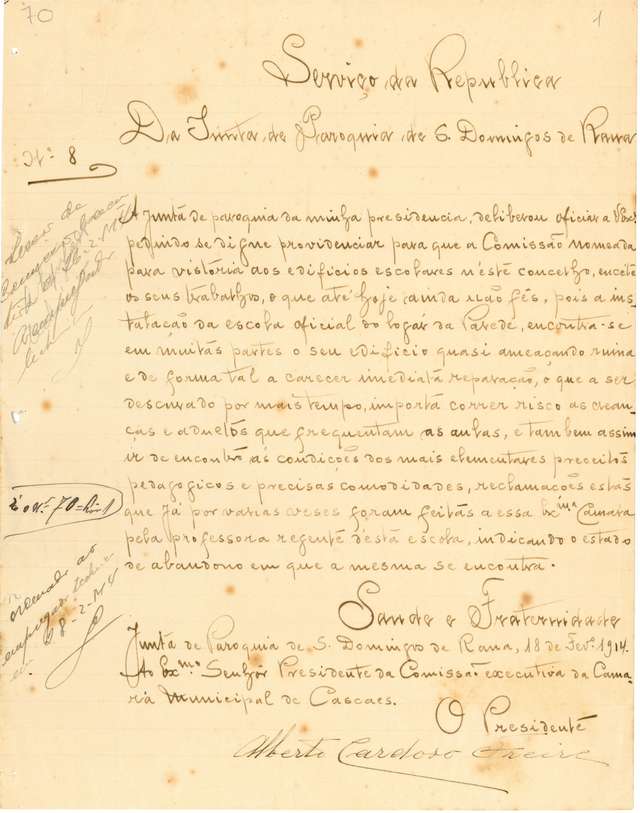 70
1
Serviço da Republica
Da Junta de Paroquia de S. Domingos de Rana
Nº 8
A Junta de paroquia da minha presidencia, deliberou oficiar a V. Exª
pedindo se digne providenciar para que a Comissão nomeada
para vistória aos edificios escolares n'éste concelho, encete
os seus trabalhos, o que até hoje ainda não fés, pois a ins-
talação da escola oficial do logár da Paréde, encontra-se
em muitas partes o seu edificio quasi ameaçando ruina
e de forma tal a carecer imediatá reparação, o que a ser
descurado por mais tempo, importá correr risco as crean-
ças e aduetos que frequentam as aulas, e tambem assim
ir de encontro ás condições dos mais elementares preceitos
pedagogicos e precisas comodidades, reclamações estás
que já por varias veses foram feitás a essa Exmª Camara
pela professora regente déstá escola, indicando o estado
de abandono em que a mesma se encontra.
70
28-2-914
Saude e Fraternidade
Junta de Paroquia de S. Domingos de Rana, 18 de Fevº 1914.
Ao Exmº Senhor Presidente da Comissão executiva da Cama-
rá Municipal de Cascaes.
O Presidenté
Alberto Cardoso Freire